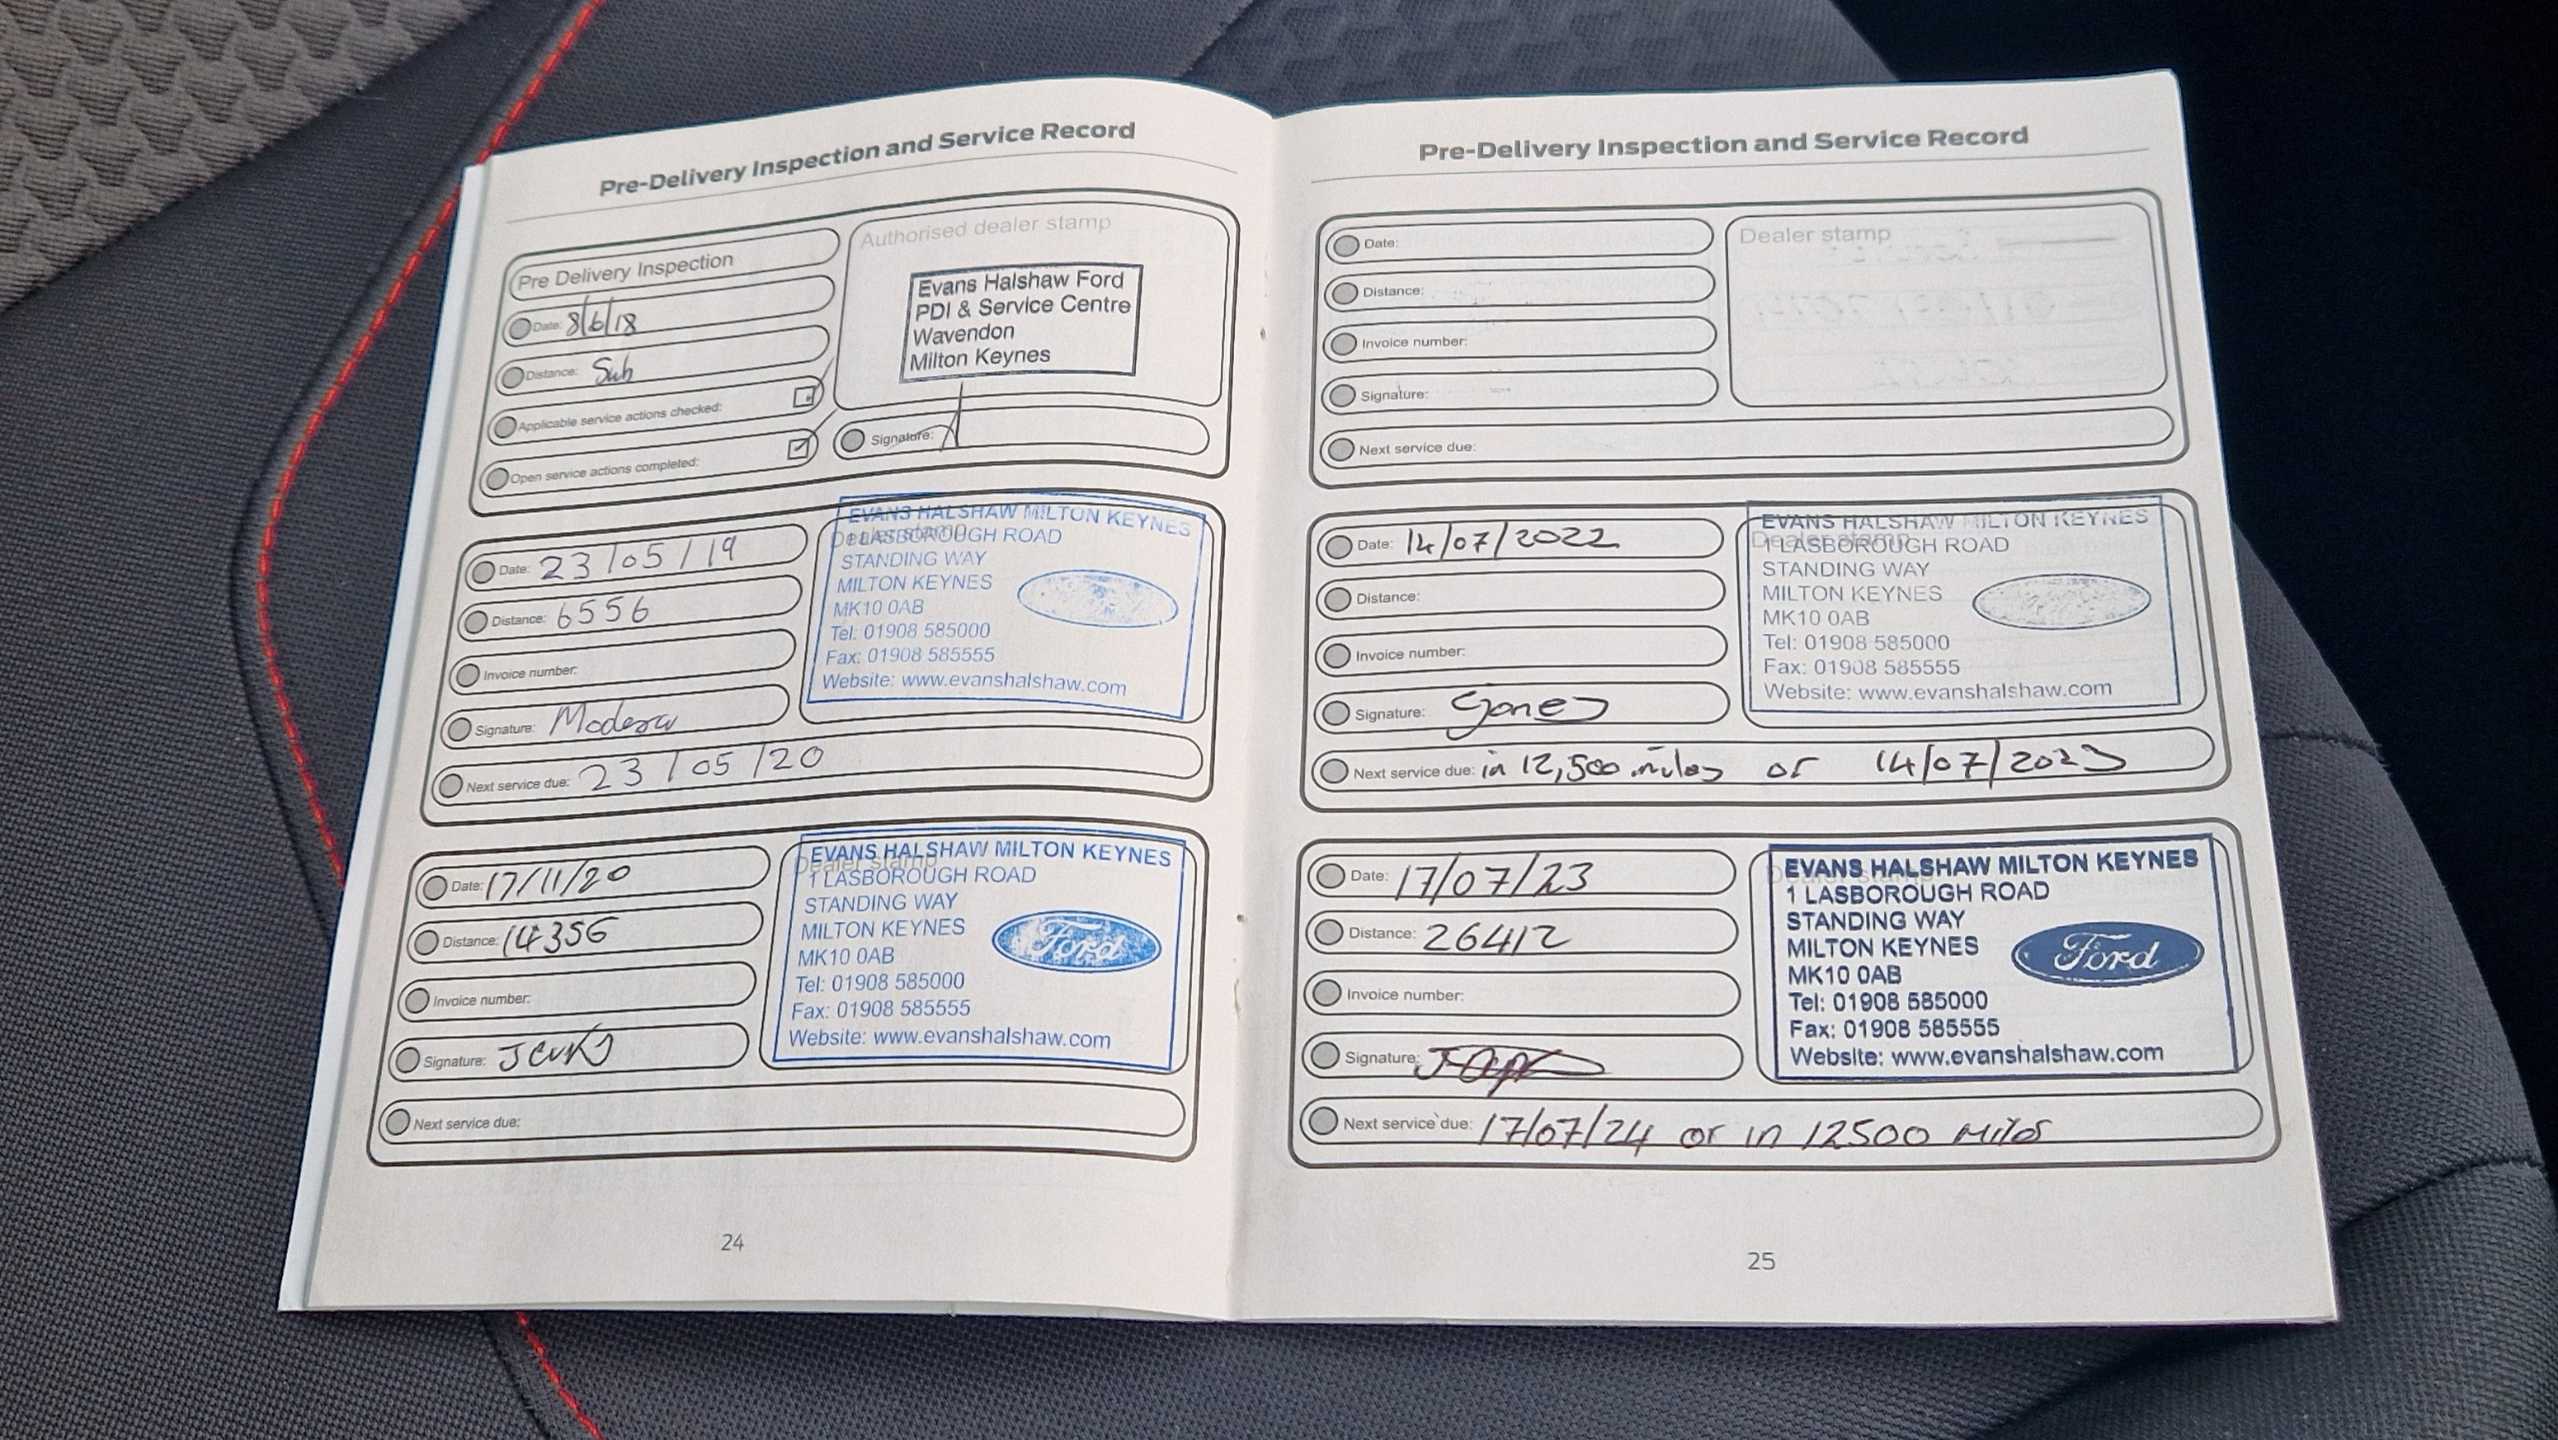 Pre-Delivery Inspection and Service Record
Pre Delivery Inspection
Date: 8/6/18
Distance: Sub
Applicable service actions checked:
Open service actions completed:
Authorised dealer stamp
Evans Halshaw Ford
PDI & Service Centre
Wavendon
Milton Keynes
Signature:
Date: 23/05/19
Distance: 6556
Invoice number:
Signature:
Next service due: 23/05/20
Dealer stamp
EVANS HALSHAW MILTON KEYNES
1 LASBOROUGH ROAD
STANDING WAY
MILTON KEYNES
MK10 0AB
Tel: 01908 585000
Fax: 01908 585555
Website: www.evanshalshaw.com
Date: 17/11/20
Distance: 14356
Invoice number:
Signature:
Next service due:
Dealer stamp
EVANS HALSHAW MILTON KEYNES
1 LASBOROUGH ROAD
STANDING WAY
MILTON KEYNES
MK10 0AB
Tel: 01908 585000
Fax: 01908 585555
Website: www.evanshalshaw.com
Ford
24
Pre-Delivery Inspection and Service Record
Date:
Distance:
Invoice number:
Signature:
Next service due:
Dealer stamp
Date: 14/07/2022
Distance:
Invoice number:
Signature: Jones
Next service due: in 12,500 miles or 14/07/2023
Dealer stamp
EVANS HALSHAW MILTON KEYNES
1 LASBOROUGH ROAD
STANDING WAY
MILTON KEYNES
MK10 0AB
Tel: 01908 585000
Fax: 01908 585555
Website: www.evanshalshaw.com
Date: 17/07/23
Distance: 26412
Invoice number:
Signature:
Next service due: 17/07/24 or in 12500 miles
Dealer stamp
EVANS HALSHAW MILTON KEYNES
1 LASBOROUGH ROAD
STANDING WAY
MILTON KEYNES
MK10 0AB
Tel: 01908 585000
Fax: 01908 585555
Website: www.evanshalshaw.com
Ford
25